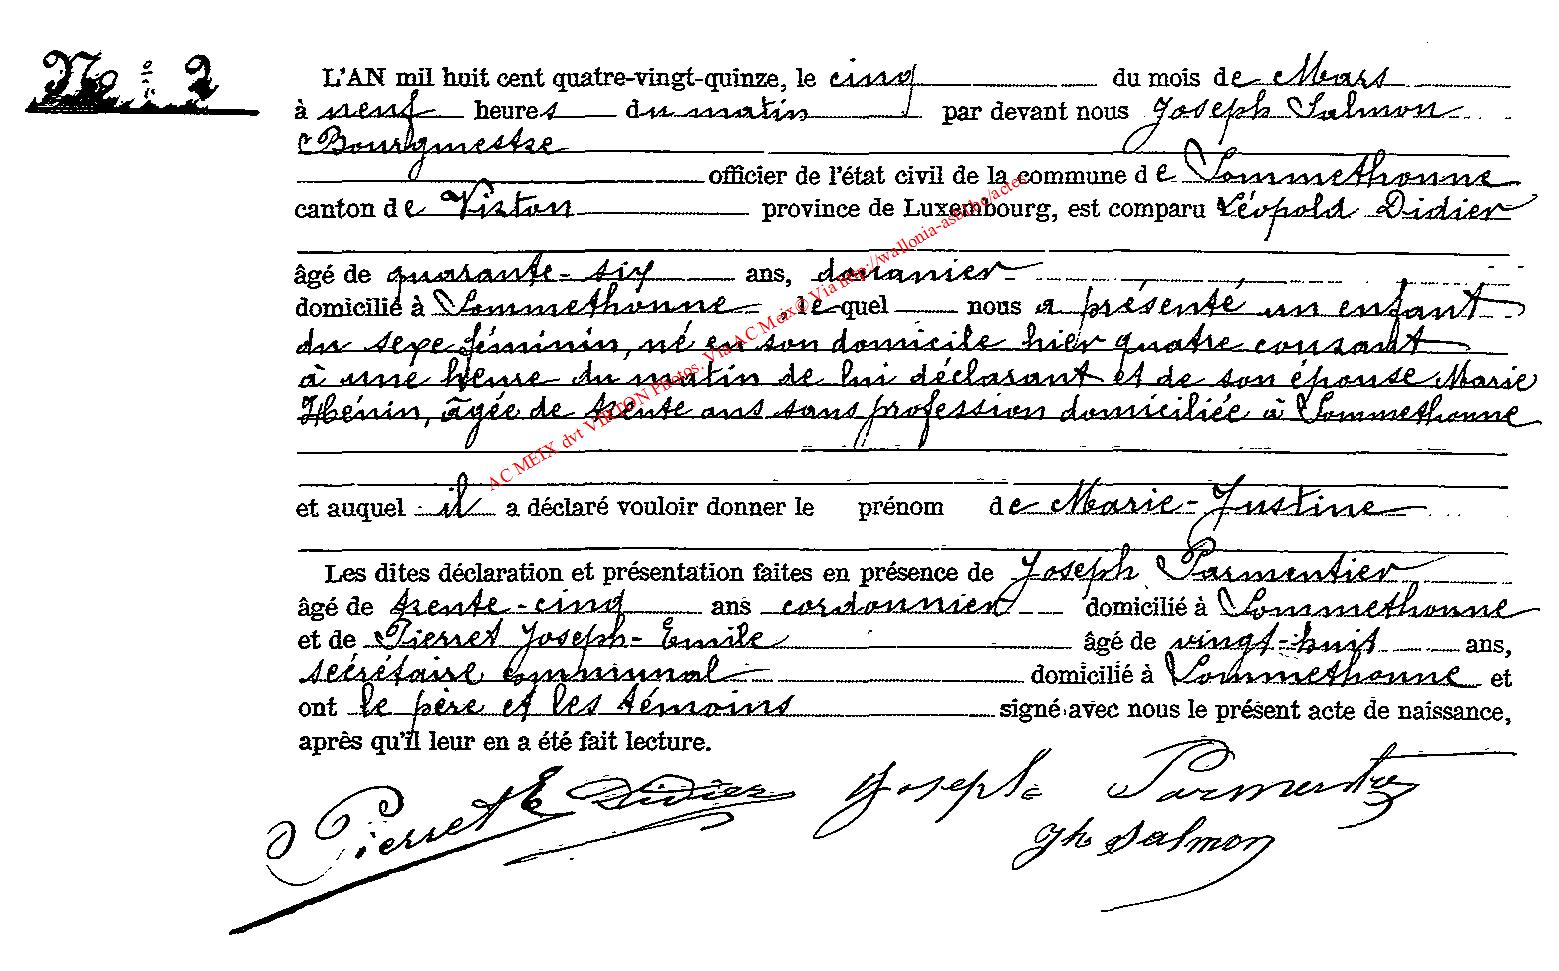 No 2
L'AN mil huit cent quatre-vingt-quinze, le cinq du mois de Mars
à neuf heures du matin par devant nous Joseph Salmon
Bourgmestre
officier de l'état civil de la commune de Sommethonne
canton de Virton province de Luxembourg, est comparu Léopold Didier
âgé de quarante-six ans, douanier
domicilié à Sommethonne, lequel nous a présenté un enfant
du sexe féminin, né en son domicile hier quatre courant
à une heure du matin de lui déclarant et de son épouse Marie
Thénin, âgée de trente ans sans profession domiciliée à Sommethonne
et auquel il a déclaré vouloir donner le prénom de Marie-Justine
Les dites déclaration et présentation faites en présence de Joseph Parmentier
âgé de trente-cinq ans cordonnier domicilié à Sommethonne
et de Pierret Joseph-Emile âgé de vingt-huit ans,
secrétaire communal domicilié à Sommethonne et
ont le père et les témoins signé avec nous le présent acte de naissance,
après qu'il leur en a été fait lecture.
Pierret E Didier Joseph Parmentier
Jh Salmon
AC MEIX dvt VIRTON Photos. Via AC Meix© Via http://wallonia-asbl.be/actes